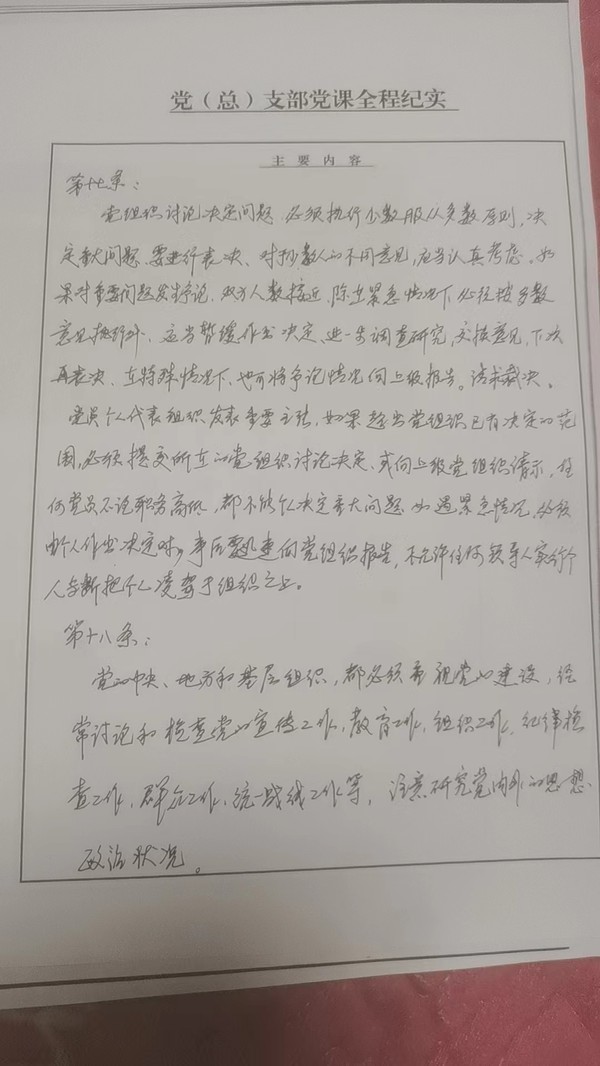 党（总）支部党课全程纪实
主要内容
第十七条：
党组织讨论决定问题，必须执行少数服从多数原则，决
定重大问题，要进行表决、对于少数人的不同意见，应当认真考虑。如
果对重要问题发生争论，双方人数接近，除在紧急情况下必须按多数
意见执行外，应当暂缓作出决定，进一步调查研究，交换意见，下次
再表决、在特殊情况下，也可将争论情况向上级报告。请求裁决。
党员个人代表组织发表重要主张，如果超出党组织已有决定的范
围，必须提交所在的党组织讨论决定、或向上级党组织请示，任
何党员不论职务高低，都不能个人决定重大问题，如遇紧急情况，必须
由个人作出决定时，事后要迅速向党组织报告，不允许任何领导人实行个
人专断把个人凌驾于组织之上。
第十八条：
党的中央、地方和基层组织，都必须重视党的建设，经
常讨论和检查党的宣传工作，教育工作，组织工作，纪律检
查工作，群众工作，统一战线工作等，注意研究党内外的思想
政治状况。